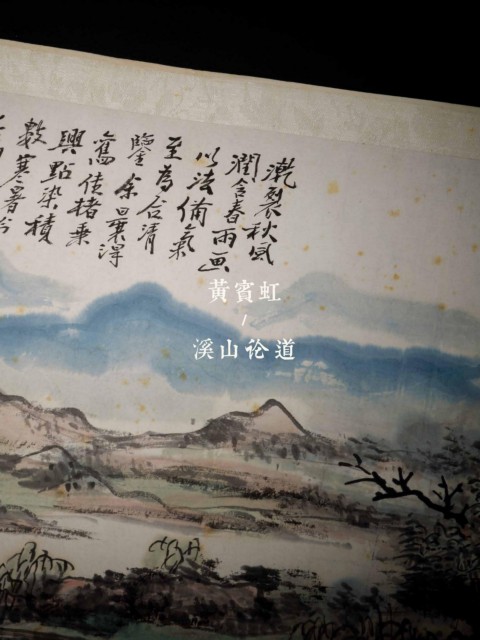 漧裂秋風
潤含春雨画
以法備氣
至為合清
鑒余曩得
舊佳楮乘
興點染積
數寒暑
黃賓虹
/
溪山论道